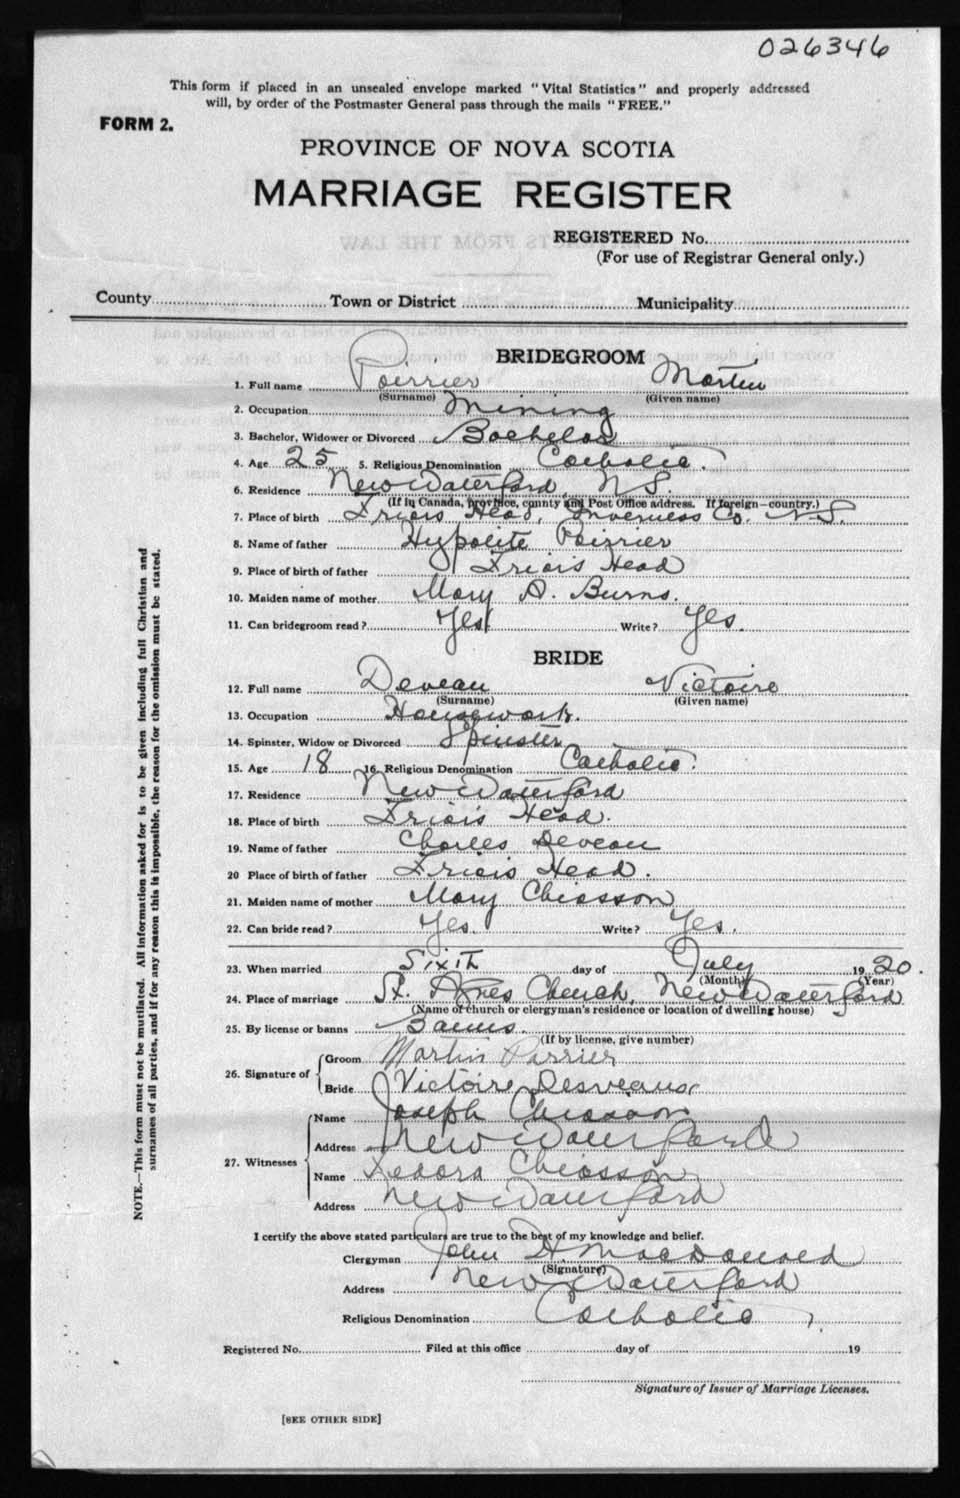 026346
This form if placed in an unsealed envelope marked "Vital Statistics" and properly addressed
will, by order of the Postmaster General pass through the mails "FREE."
FORM 2.
PROVINCE OF NOVA SCOTIA
MARRIAGE REGISTER
REGISTERED No.
(For use of Registrar General only.)
County Town or District Municipality
BRIDEGROOM
1. Full name Poirrier Martin
(Surname) (Given name)
2. Occupation Mining
3. Bachelor, Widower or Divorced Bachelor
4. Age 25 5. Religious Denomination Catholic.
6. Residence New Waterford N S.
(If in Canada, province, county and Post Office address. If foreign—country.)
7. Place of birth Friars Head, Inverness Co. N.S.
8. Name of father Hypolite Poirrier
9. Place of birth of father Friars Head
10. Maiden name of mother Mary A. Burns.
11. Can bridegroom read? Yes Write? Yes.
BRIDE
12. Full name Deveau Victoire
(Surname) (Given name)
13. Occupation Housework.
14. Spinster, Widow or Divorced Spinster
15. Age 18 16. Religious Denomination Catholic.
17. Residence New Waterford
18. Place of birth Friars Head.
19. Name of father Charles Deveau
20 Place of birth of father Friars Head.
21. Maiden name of mother Mary Chiasson
22. Can bride read? Yes. Write? Yes.
23. When married Sixth day of July 1920.
(Month) (Year)
24. Place of marriage St. Agnes Church, New Waterford
(Name of church or clergyman's residence or location of dwelling house)
25. By license or banns Banns.
(If by license, give number)
26. Signature of Groom Martin Parrier
Bride Victoire Desveaux
27. Witnesses Name Joseph Chiasson
Address New Waterford
Name Chiasson
Address New Waterford
I certify the above stated particulars are true to the best of my knowledge and belief.
Clergyman John H. MacDonald
(Signature)
Address New Waterford
Religious Denomination Catholic
Registered No. Filed at this office day of 19
Signature of Issuer of Marriage Licenses.
[SEE OTHER SIDE]
NOTE.—This form must not be mutilated. All information asked for is to be given including full Christian and
surnames of all parties, and if for any reason this is impossible, the reason for the omission must be stated.